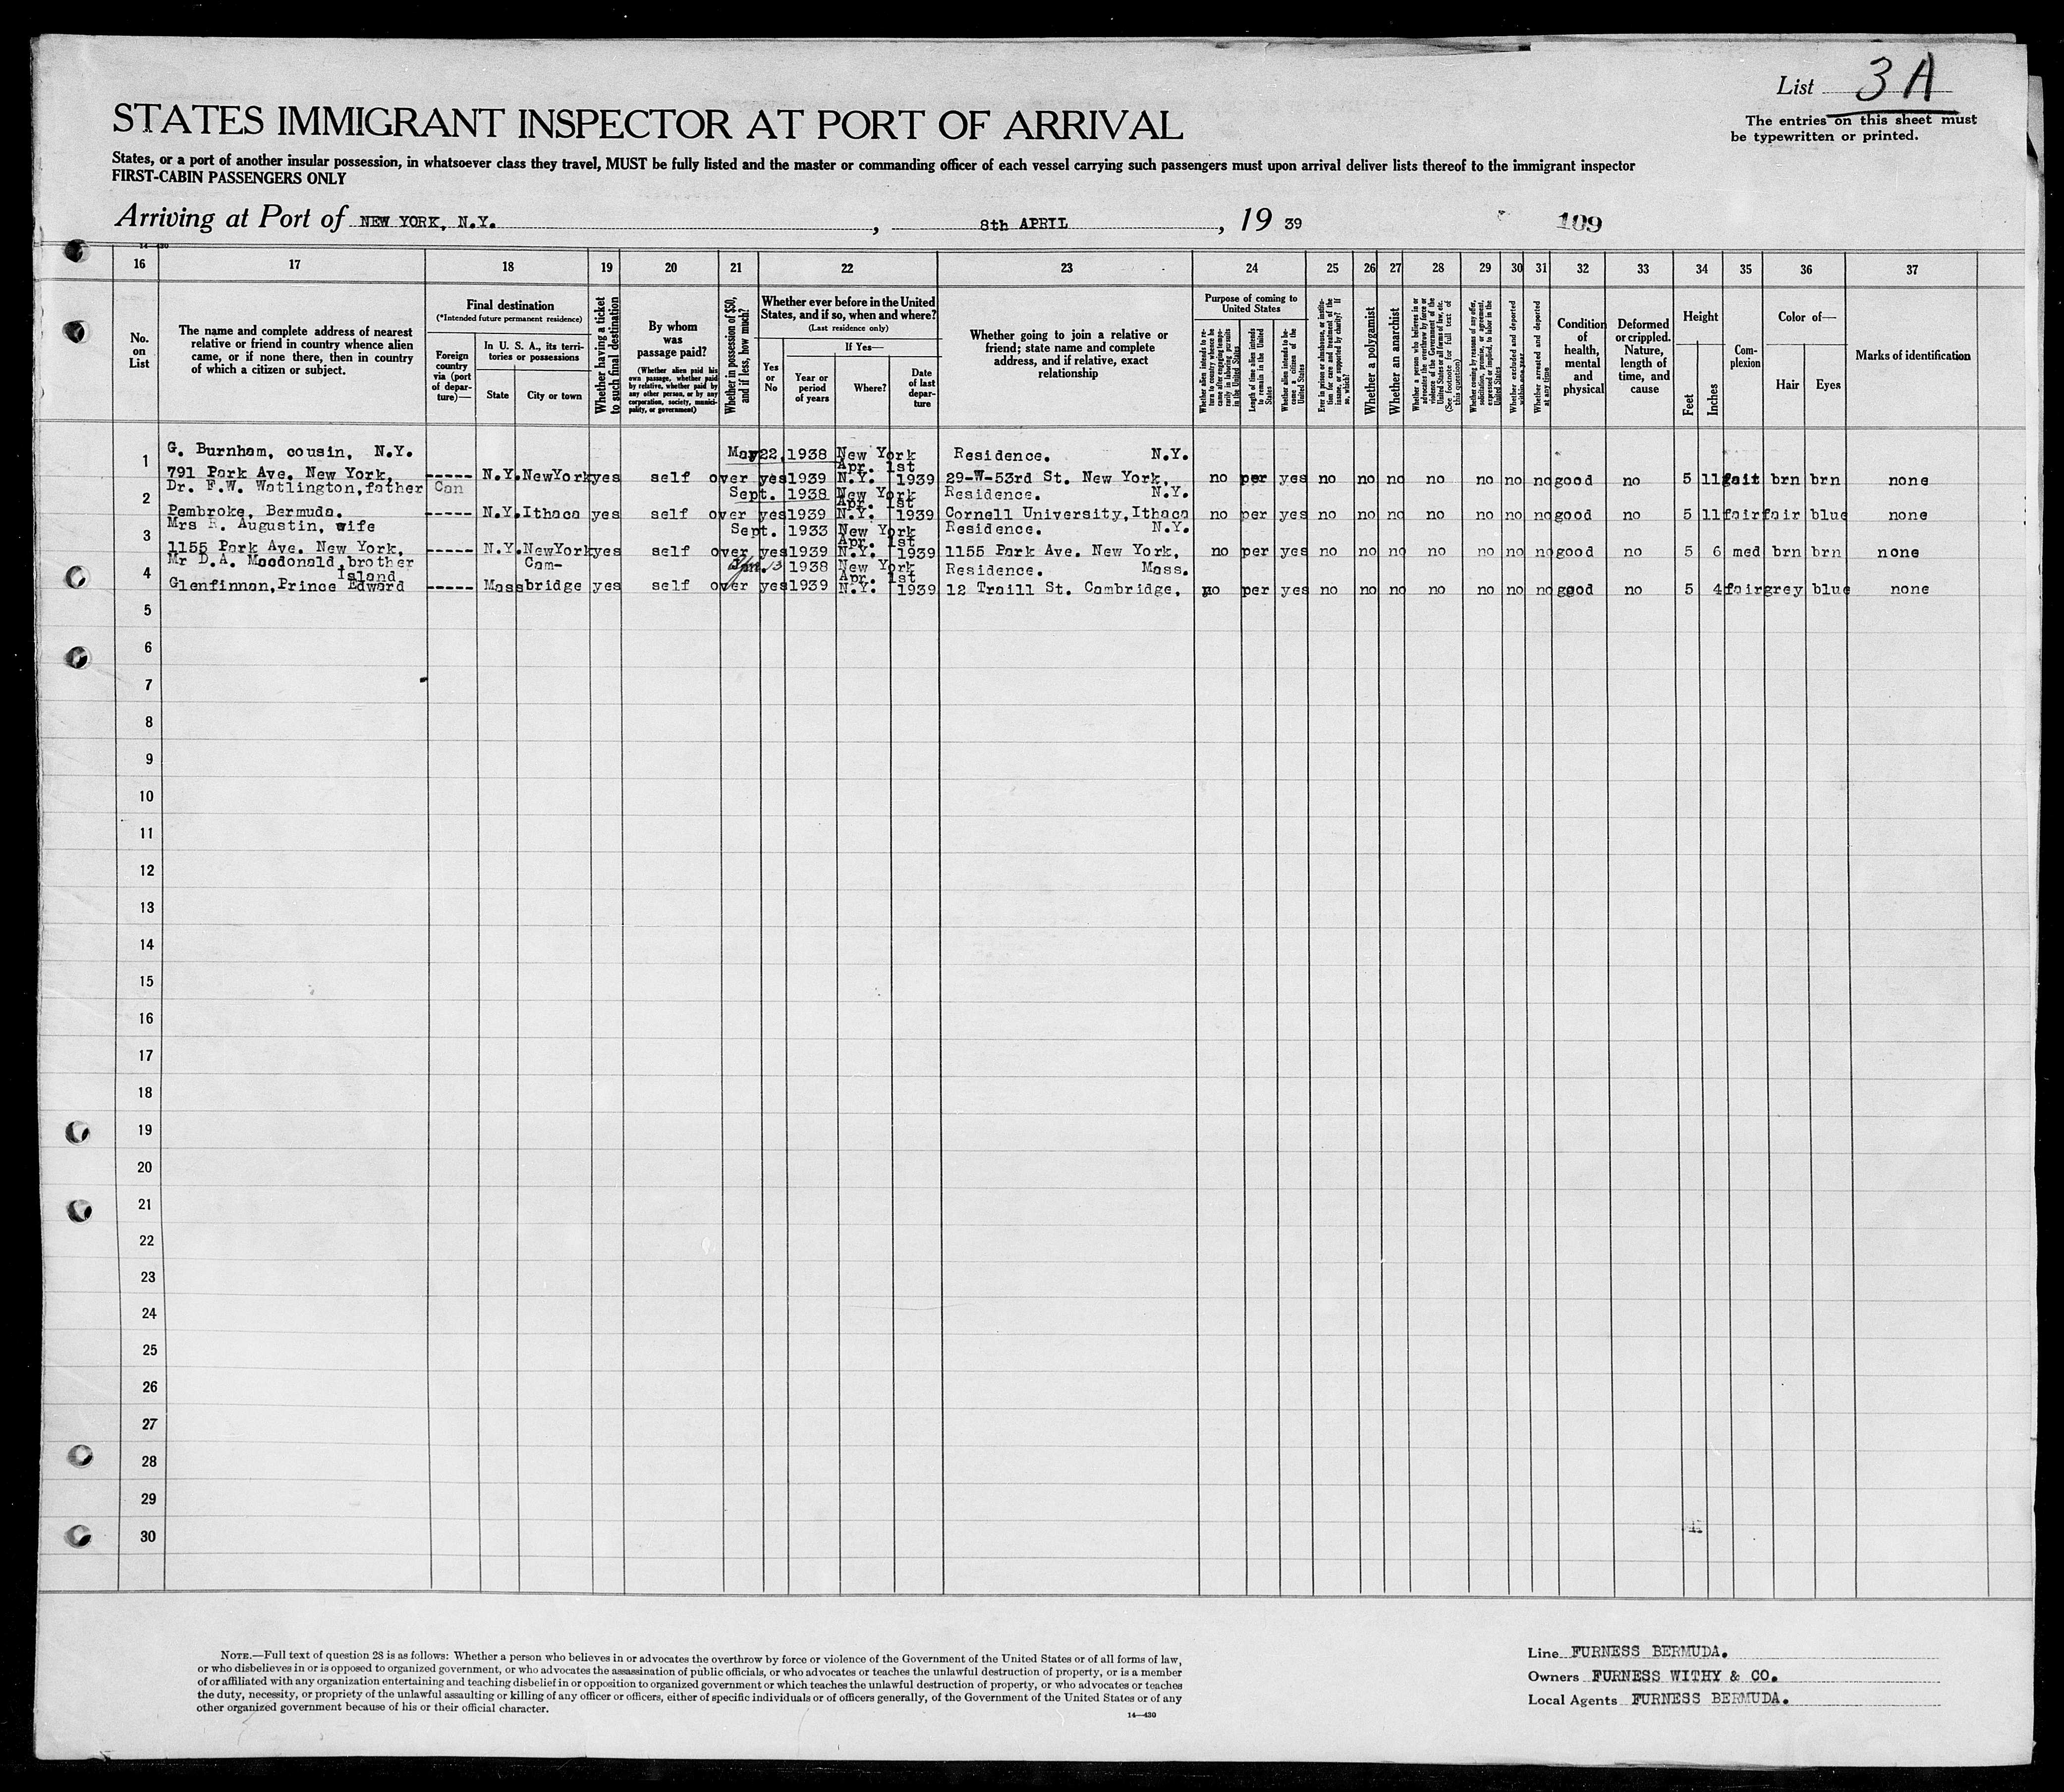 List 3 A
STATES IMMIGRANT INSPECTOR AT PORT OF ARRIVAL
The entries on this sheet must
be typewritten or printed.
States, or a port of another insular possession, in whatsoever class they travel, MUST be fully listed and the master or commanding officer of each vessel carrying such passengers must upon arrival deliver lists thereof to the immigrant inspector
FIRST-CABIN PASSENGERS ONLY
Arriving at Port of NEW YORK, N.Y. , 8th APRIL , 19 39 109
14-430
16 17 18 19 20 21 22 23 24 25 26 27 28 29 30 31 32 33 34 35 36 37
No. on List
The name and complete address of nearest
relative or friend in country whence alien
came, or if none there, then in country
of which a citizen or subject.
Final destination
(*Intended future permanent residence)
Foreign country via (port of departure)—
In U. S. A., its territories or possessions
State
City or town
Whether having a ticket to such final destination
By whom was passage paid?
(Whether alien paid his own passage, whether paid by relative, whether paid by any other person, or by any corporation, society, municipality, or government)
Whether in possession of $50, and if less, how much?
Whether ever before in the United States, and if so, when and where?
(Last residence only)
Yes or No
If Yes—
Year or period of years
Where?
Date of last departure
Whether going to join a relative or
friend; state name and complete
address, and if relative, exact
relationship
Purpose of coming to United States
Whether alien intends to return to country whence he came after engaging temporarily in laboring pursuits in the United States
Length of time alien intends to remain in the United States
Whether alien intends to become a citizen of the United States
Ever in prison or almshouse, or institution for care and treatment of the insane, or supported by charity? If so, which?
Whether a polygamist
Whether an anarchist
Whether a person who believes in or advocates the overthrow by force or violence of the Government of the United States or all forms of law, etc. (See footnote for full text of this question)
Whether coming by reasons of any offer, solicitation, promise, or agreement, expressed or implied, to labor in the United States
Whether excluded and deported within one year
Whether arrested and deported at any time
Condition of health, mental and physical
Deformed or crippled. Nature, length of time, and cause
Height
Feet
Inches
Complexion
Color of—
Hair
Eyes
Marks of identification
G. Burnham, cousin, N.Y. May 22, 1938 New York Residence. N.Y.
1 791 Park Ave. New York, ----- N.Y. NewYork yes self over yes 1939 N.Y. Apr. 1st 1939 29-W-53rd St. New York, no per yes no no no no no no no good no 5 11 fait brn brn none
Dr. F.W. Watlington, father Can Sept. 1938 New York Residence. N.Y.
2 Pembroke, Bermuda. ----- N.Y. Ithaca yes self over yes 1939 N.Y. Apr. 1st 1939 Cornell University, Ithaca no per yes no no no no no no no good no 5 11 fair fair blue none
Mrs R. Augustin, wife Sept. 1933 New York Residence. N.Y.
3 1155 Park Ave. New York, ----- N.Y. NewYork yes self over yes 1939 N.Y. Apr. 1st 1939 1155 Park Ave. New York, no per yes no no no no no no no good no 5 6 med brn brn none
Mr D.A. Macdonald, brother Cam- 13 1938 New York Residence. Mass.
4 Glenfinnan, Prince Edward Island ----- Mass bridge yes self over yes 1939 N.Y. Apr. 1st 1939 12 Traill St. Cambridge, no per yes no no no no no no no good no 5 4 fair grey blue none
5
6
7
8
9
10
11
12
13
14
15
16
17
18
19
20
21
22
23
24
25
26
27
28
29
30
NOTE.—Full text of question 28 is as follows: Whether a person who believes in or advocates the overthrow by force or violence of the Government of the United States or of all forms of law,
or who disbelieves in or is opposed to organized government, or who advocates the assassination of public officials, or who advocates or teaches the unlawful destruction of property, or is a member
of or affiliated with any organization entertaining and teaching disbelief in or opposition to organized government or which teaches the unlawful destruction of property, or who advocates or teaches
the duty, necessity, or propriety of the unlawful assaulting or killing of any officer or officers, either of specific individuals or of officers generally, of the Government of the United States or of any
other organized government because of his or their official character.
14—430
Line FURNESS BERMUDA.
Owners FURNESS WITHY & CO.
Local Agents FURNESS BERMUDA.